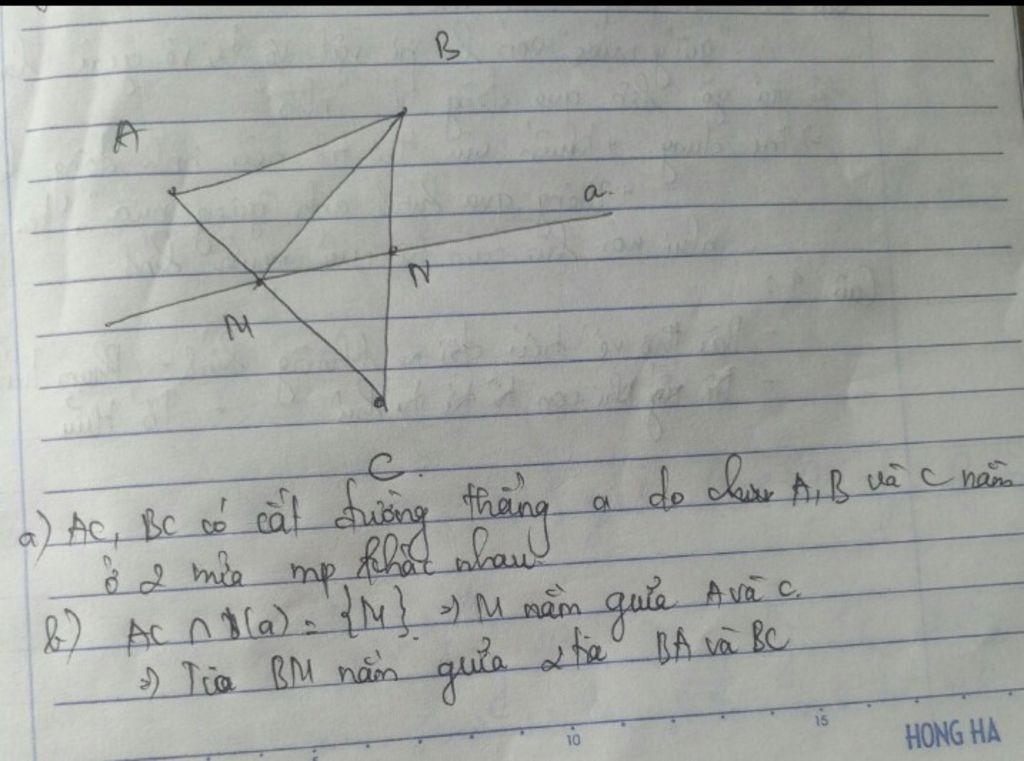 B
A
a
N
M
C
a) AC, BC có cắt đường thẳng a do A, B và C nằm
ở 2 nửa mp khác nhau.
b) AC ∩ (a) = {M}. => M nằm giữa A và C.
=> Tia BM nằm giữa 2 tia BA và BC
10
15
HONG HA